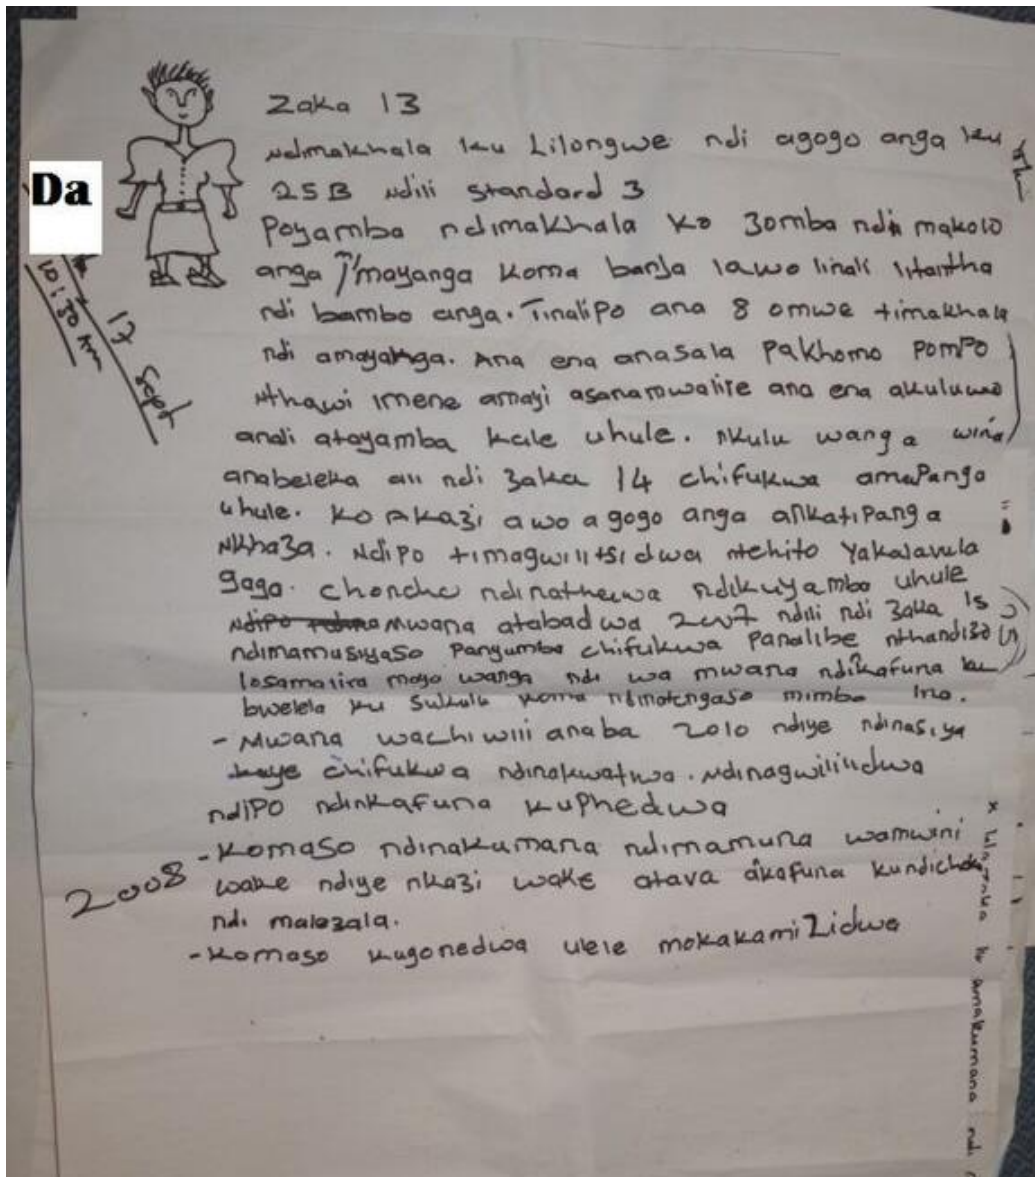 Zaka 13
Ndimakhala ku Lilongwe ndi agogo anga ku
25B Ndili standard 3
Da
Poyamba ndimakhala ko Zomba ndi makolo
anga mayanga koma banja lawo linali litaitha
ndi bambo anga. Tinalipo ana 8 omwe timakhala
ndi amayanga. Ana ena anasala pakhomo pompo
Nthawi imene amayi asanamwalire ana ena akuluwo
andi atayamba kale uhule. Nkulu wanga wina
anabeleka ali ndi zaka 14 chifukwa amapanga
uhule. Ko Akazi awo agogo anga ankatipanga
Nkhaza. Ndipo timagwilitsidwa ntchito yakalavula
gaga. Choncho ndinathawa ndikuyamba uhule
mwana atabadwa 2007 ndili ndi zaka 15
ndimamusiyaso panyumba chifukwa panalibe nthandizo
losamalira moyo wanga ndi wa mwana ndikafuna ku
bwelela ku sukulu koma ndinatengaso mimba ina.
- Mwana wachiwiri anaba 2010 ndiye ndinasiya
chifukwa ndinakwatiwa. Ndinagwililidwa
ndipo ndinkafuna kuphedwa
2008 - Komaso ndinakumana ndimamuna wamwini
wake ndiye nkazi wake atava akafuna
ndi malezala.
- Komaso kugonedwa ulele mokakamizidwa
17 Sept
10:30 Am
amakumana ndi